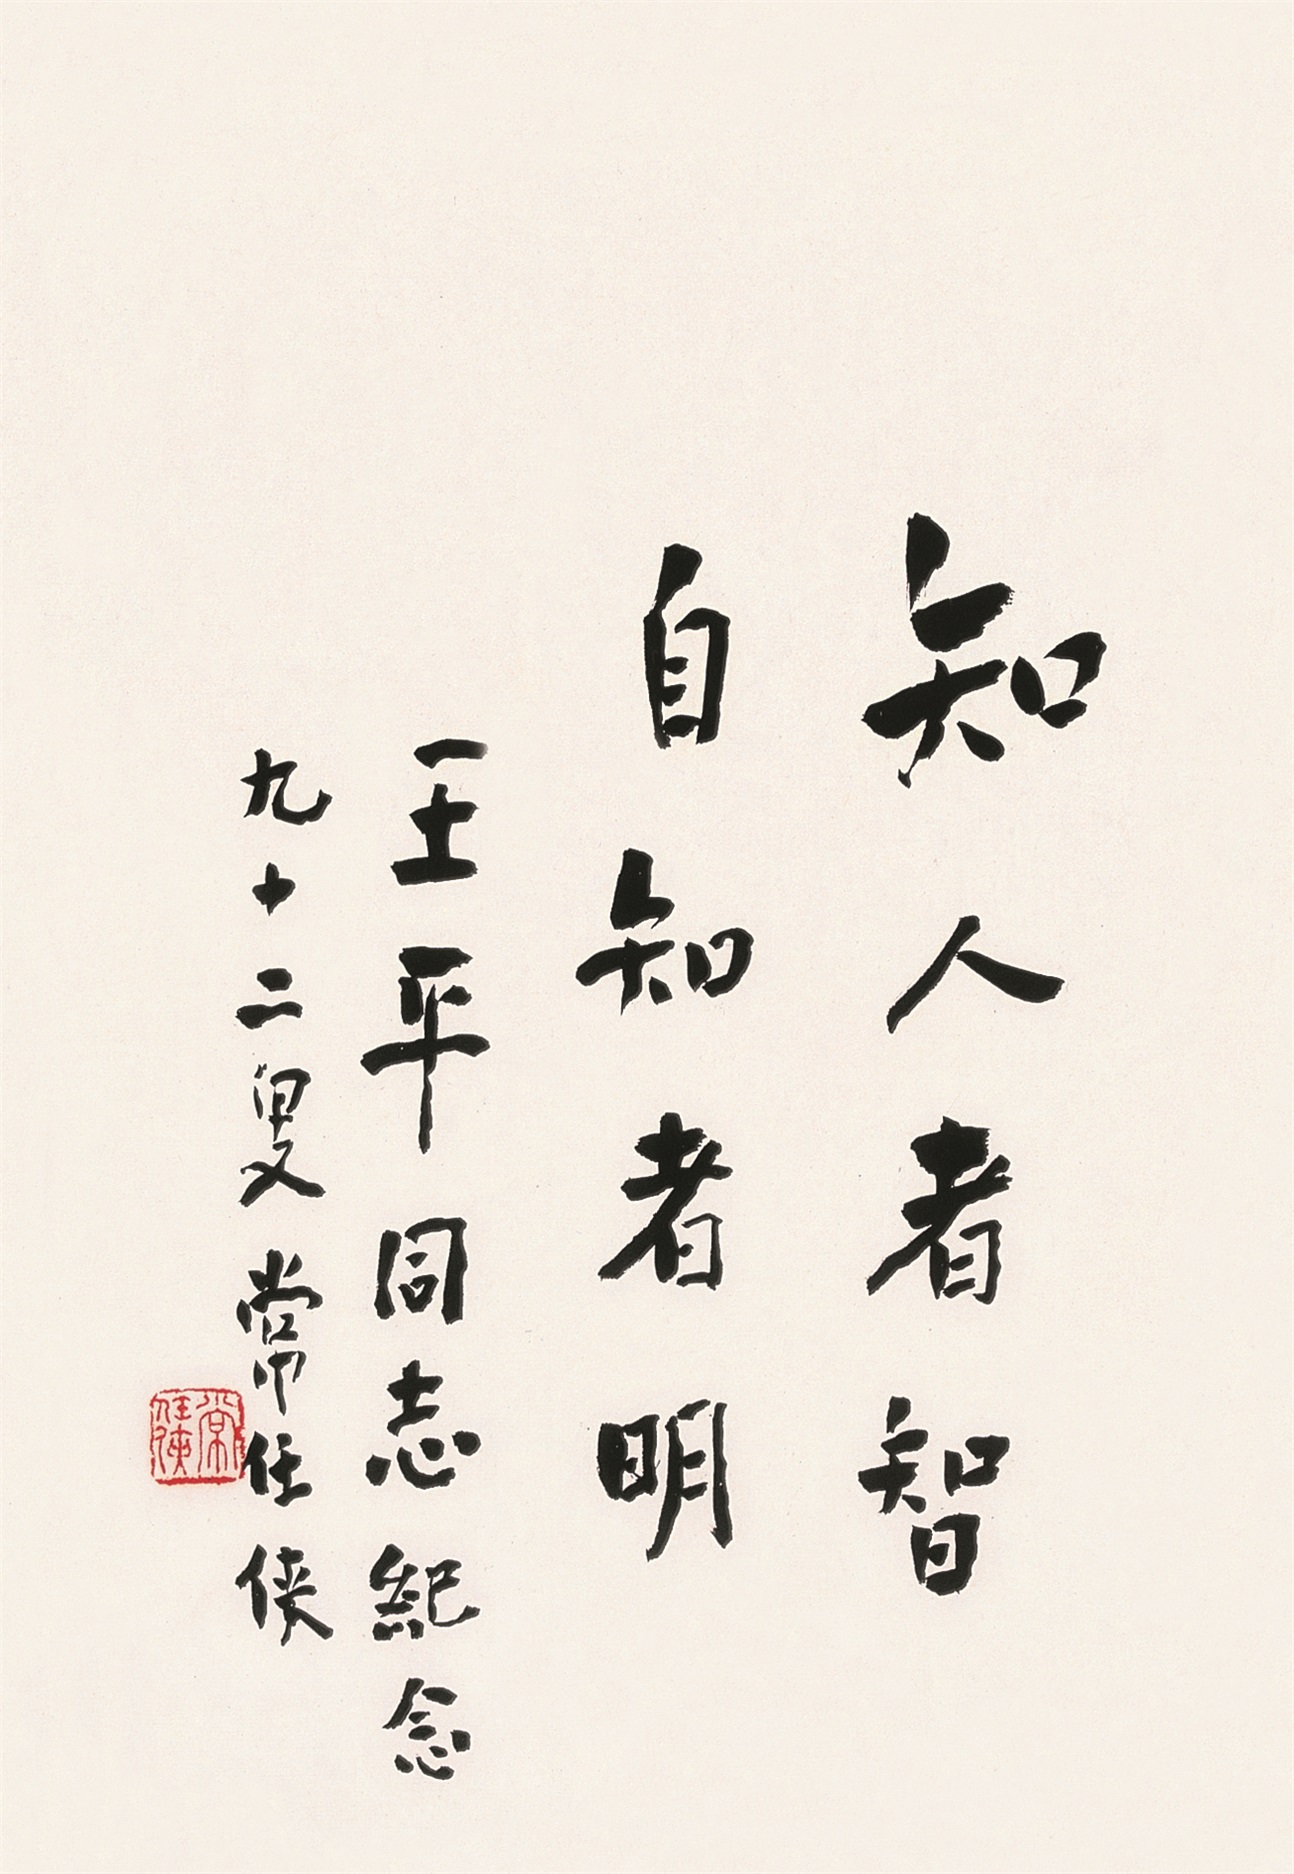 知人者智
自知者明
王平同志紀念
九十二叟常任侠
常任俠